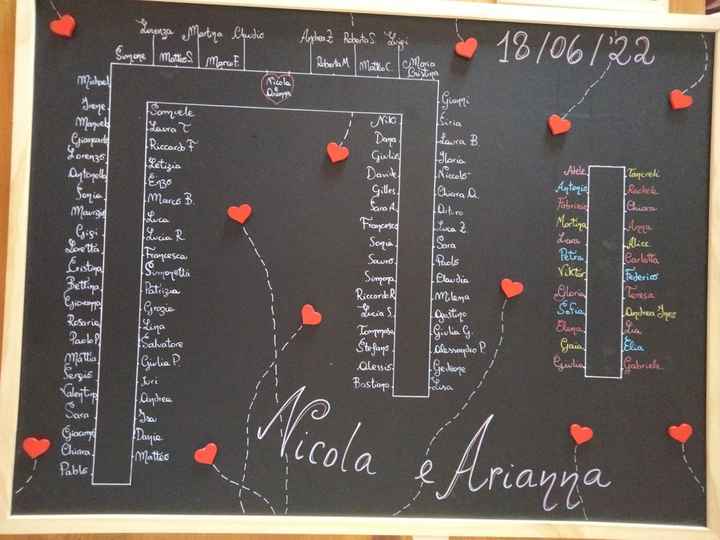 18/06/22
Lorenza Martina Claudio
Andrea Z. Roberto S. Luigi
Simone Matteo S. Marco F.
Roberta M. Matteo C. Maria Cristina
Nicola
Arianna
Michael
Irene
Manuel
Giancarlo
Lorenzo
Antonella
Sonia
Maurizio
Gigi
Loretta
Cristina
Bettina
Giovanna
Rosaria
Paolo P.
Mattia
Sergio
Valentino
Sara
Giacomo
Chiara
Pablo
Samuele
Laura T.
Riccardo F.
Letizia
Enzo
Marco B.
Luca
Lucia R.
Francesca
Simonetta
Patrizia
Grazia
Lina
Salvatore
Giulia P.
Juri
Andrea
Isa
Dania
Matteo
Niki
Dana
Giulia
Davide
Gilles
Sara A.
Francesco
Sonia
Sauro
Simona
Riccardo R.
Lucia S.
Tommaso
Stefano
Alessio
Bastiano
Gianni
Licia
Laura B.
Ilaria
Niccolò
Chiara D.
Arturo
Luca Z.
Sara
Paolo
Claudia
Milena
Agostino
Giulia G.
Alessandro P.
Gedeone
Luisa
Adele
Antonio
Fabrizio
Martina
Lara
Petra
Viktor
Gloria
Sofia
Elena
Gaia
Giulia
Tancredi
Rachele
Chiara
Anna
Alice
Carlotta
Federico
Teresa
Andrea Ines
Lia
Elia
Gabriele
Nicola e Arianna